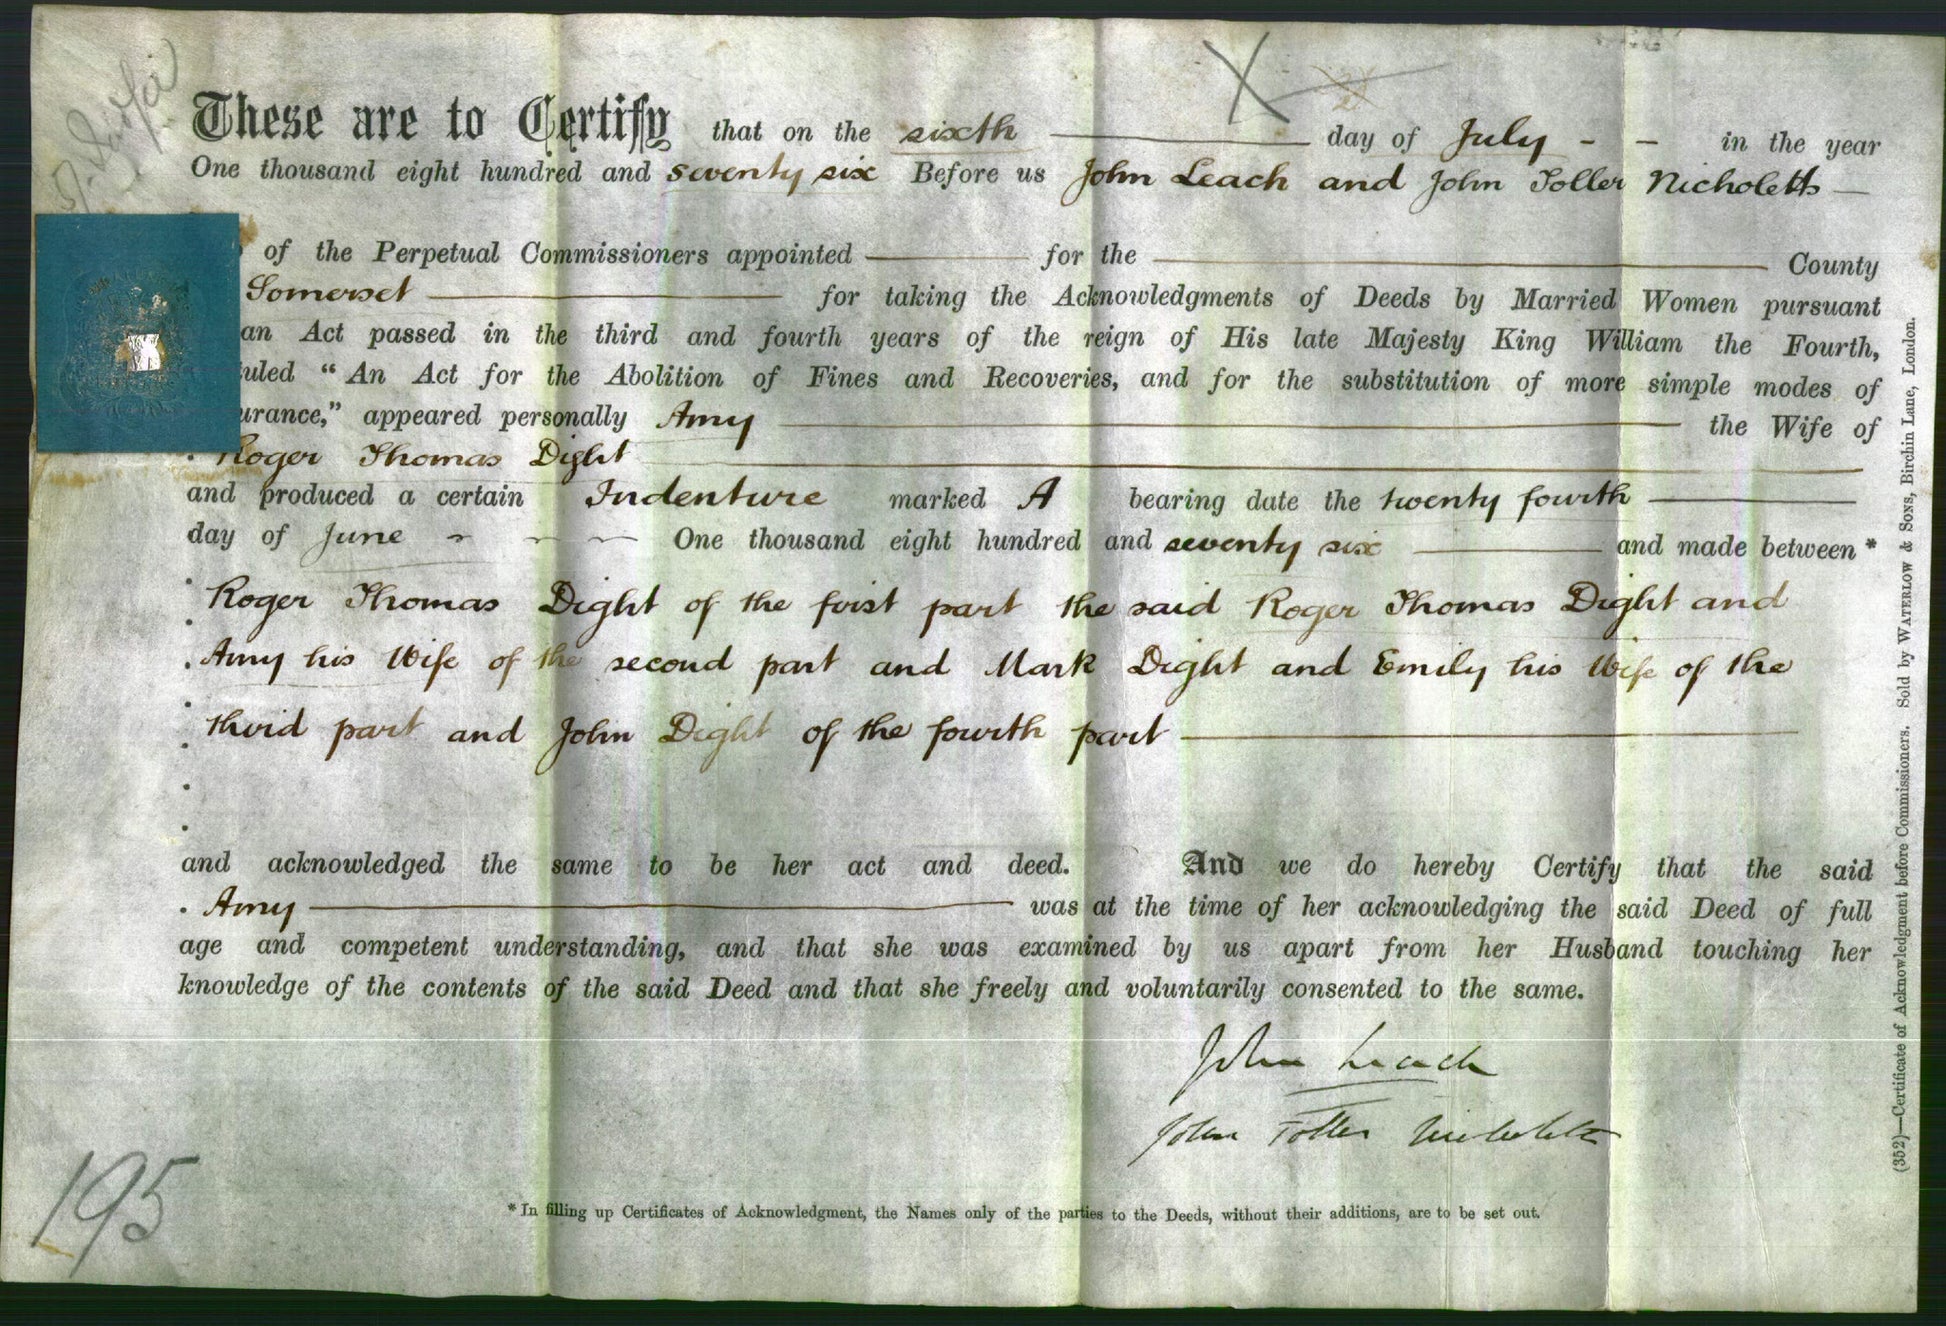 These are to Certify that on the sixth day of July - - in the year
One thousand eight hundred and seventy six Before us John Leach and John Toller Nicholetts
of the Perpetual Commissioners appointed for the County
Somerset for taking the Acknowledgments of Deeds by Married Women pursuant
an Act passed in the third and fourth years of the reign of His late Majesty King William the Fourth,
tuled "An Act for the Abolition of Fines and Recoveries, and for the substitution of more simple modes of
urance," appeared personally Amy the Wife of
Roger Thomas Dight
and produced a certain Indenture marked A bearing date the twenty fourth
day of June One thousand eight hundred and seventy six and made between *
Roger Thomas Dight of the first part the said Roger Thomas Dight and
Amy his Wife of the second part and Mark Dight and Emily his Wife of the
third part and John Dight of the fourth part
and acknowledged the same to be her act and deed. And we do hereby Certify that the said
Amy was at the time of her acknowledging the said Deed of full
age and competent understanding, and that she was examined by us apart from her Husband touching her
knowledge of the contents of the said Deed and that she freely and voluntarily consented to the same.
John Leach
John Toller Nicholetts
195
* In filling up Certificates of Acknowledgment, the Names only of the parties to the Deeds, without their additions, are to be set out.
(352)—Certificate of Acknowledgment before Commissioners. Sold by WATERLOW & SONS, Birchin Lane, London.